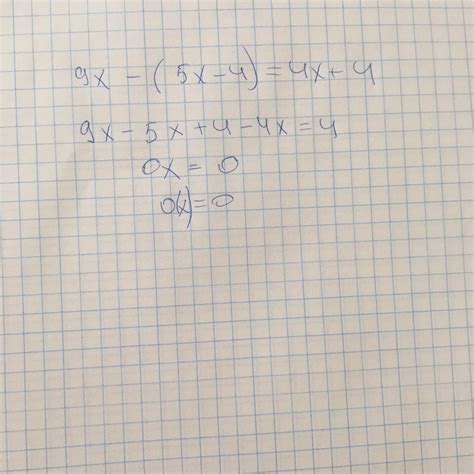 9x - (5x - 4) = 4x + 4
9x - 5x + 4 - 4x = 4
0x = 0
0(x) = 0